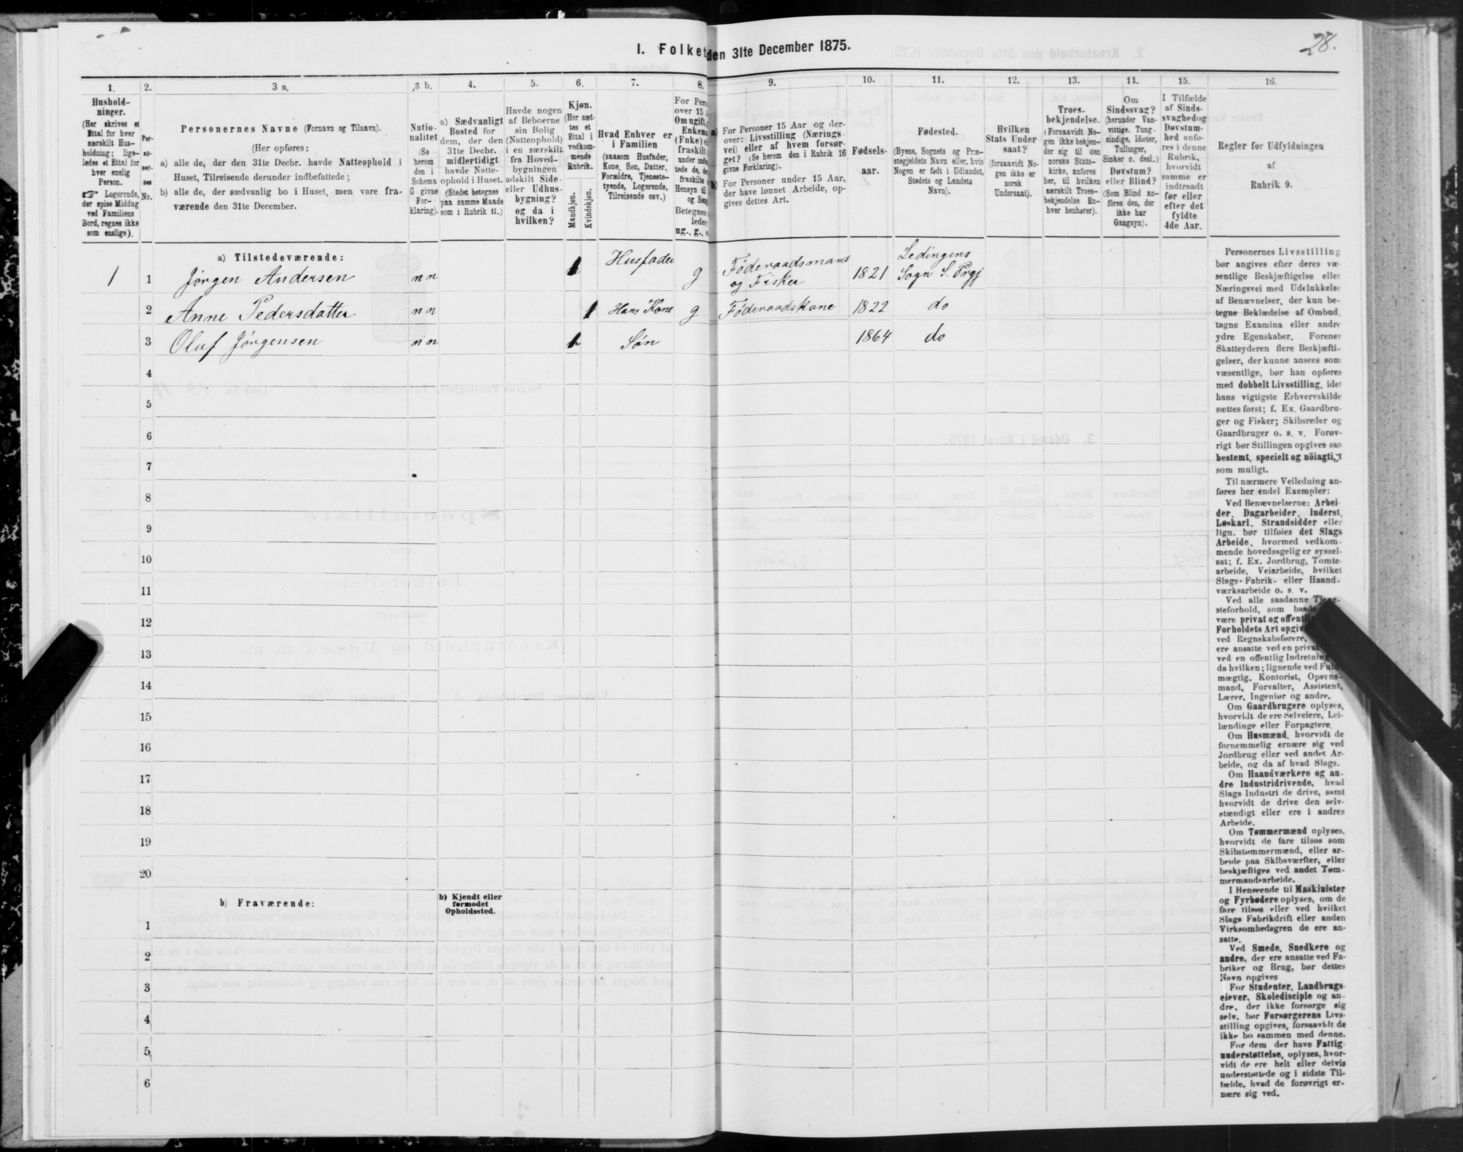 28.
I. Folket
den 31te December 1875.
1.
2.
3 a.
3 b.
4.
5.
6.
7.
8.
9.
10.
11.
12.
13.
14.
15.
16.
Hushold-
ninger.
(Her skrives et
Ettal for hver
særskilt Hus-
holdning; lige-
ledes et Ettal for
hver enslig
Person.
☞ Logerende,
der spise Middag
ved Familiens
Bord, regnes ikke
som enslige).
Per-
so-
ner-
nes
No.
Personernes Navne (Fornavn og Tilnavn).
(Her opføres:
a) alle de, der den 31te Decbr. havde Natteophold i
Huset, Tilreisende derunder indbefattede;
b) alle de, der sædvanlig bo i Huset, men vare fra-
værende den 31te December.
Natio-
nalitet
(Se
herom
den i
Schema
G givne
For-
klaring).
a) Sædvanligt
Bosted for
dem, der den
31te Decbr.
midlertidigt
havde Natte-
ophold i Huset.
(Stedet betegnes
paa samme Maade
som i Rubrik 11.)
Havde nogen
af Beboerne
sin Bolig
(Natteophold)
i en særskilt
fra Hoved-
bygningen
adskilt Side-
eller Udhus-
bygning?
og da i
hvilken?
Kjøn.
(Her sæt-
tes et
Ettal i
vedkom-
mende
Rubrik.
Mandkjøn.
Kvindekjøn.
Hvad Enhver er
i Familien
(saasom Husfader,
Kone, Søn, Datter,
Forældre, Tjeneste-
tyende, Logerende,
Tilreisende osv.)
For Pers
over 15
Om ugift,
Enken
(Fnke)
fraskilt
For Personer 15 Aar og der-
over: Livsstilling (Nærings-
vei) eller af hvem forsør-
get? (Se herom den i Rubrik 16
givne Forklaring).
For Personer under 15 Aar,
der have lønnet Arbeide, op-
gives dettes Art.
Fødsels-
aar.
Fødested.
(Byens, Sognets og Præ-
stegjeldets Navn eller, hvis
Nogen er født i Udlandet,
Stedets og Landets
Navn).
Hvilken
Stats Under-
saat?
(forsaavidt No-
gen ikke er
norsk
Undersaat).
Troes-
bekjendelse.
(Forsaavidt No-
gen ikke bekjen-
der sig til den
norske Stats-
kirke, anføres
her, til hvilken
særskilt Troes-
bekjendelse En-
hver henhører).
Om
Sindssvag?
(herunder Van-
vittige, Tung-
sindige, Idioter,
Tullinger,
Sinker o. desl.)
Døvstum?
eller Blind?
(Som Blind an-
føres den, der
ikke har
Gangsyn).
I Tilfælde
af Sinds-
svaghed og
Døvstum-
hed anfø-
res i denne
Rubrik,
hvorvidt
samme er
indtraadt
før eller
efter det
fyldte
4de Aar.
Regler for Udfyldningen
af
Rubrik 9.
a) Tilstedeværende:
1 1 Jørgen Andersen n n 1 Husfader g Føderaadsmand og Fisker 1821 Ledingens Sogn S. Prgj
2 Anne Pedersdatter n n 1 Hans Kone g Føderaadskone 1822 do
3 Oluf Jørgensen n n 1 Søn 1864 do
4
5
6
7
8
9
10
11
12
13
14
15
16
17
18
19
20
b) Fraværende:
b) Kjendt eller
formodet
Opholdssted.
1
2
3
4
5
6
Personernes Livsstilling
bør angives efter deres væ-
sentlige Beskjæftigelse eller
Næringsvei med Udelukkelse
af Benævnelser, der kun be-
tegne Bekledelse af Ombud,
tagne Examina eller andre
ydre Egenskaber. Forener
Skatteyderen flere Beskjæfti-
gelser, der kunne ansees som
væsentlige, bør han opføres
med dobbelt Livsstilling, idet
hans vigtigste Erhvervskilde
sættes først; f. Ex. Gaardbru-
ger og Fisker; Skibsreder og
Gaardbruger o. s. v. Forøv-
rigt bør Stillingen opgives saa
bestemt, specielt og nöiagtigt
som muligt.
Til nærmere Veiledning an-
føres her endel Exempler:
Ved Benævnelserne: Arbei-
der, Dagarbeider, Inderst,
Løskarl, Strandsidder eller
lign. bør tilføies det Slags
Arbeide, hvormed vedkom-
mende hovedsagelig er syssel-
sat; f. Ex. Jordbrug, Tomte-
arbeide, Veiarbeide, hvilket
Slags Fabrik- eller Haand-
værksarbeide o. s. v.
Ved alle saadanne
steforhold, som
være privat og
Forholdets Art
ved Regnskabsførere,
ere ansatte ved en
ved en offentlig Indretning
da hvilken; lignende ved Fuld-
mægtig, Kontorist, Opsyns-
mand, Forvalter, Assistent,
Lærer, Ingeniør og andre.
Om Gaardbrugere oplyses,
hvorvidt de ere Selveiere, Lei-
lændinge eller Forpagtere.
Om Husmænd, hvorvidt de
fornemmelig ernære sig ved
Jordbrug eller ved andet Ar-
beide, og da af hvad Slags.
Om Haandværkere og an-
dre Industridrivende, hvad
Slags Industri de drive, samt
hvorvidt de drive den selv-
stændigt eller ere i andres
Arbeide.
Om Tømmermænd oplyses,
hvorvidt de fare tilsøs som
Skibstømmermænd, eller ar-
beide paa Skibsværfter, eller
beskjæftiges ved andet Tøm-
mermandsarbeide.
I Henseende til Maskinister
og Fyrbødere oplyses, om de
fare tilsøs eller ved hvilket
Slags Fabrikdrift eller anden
Virksombedsgren de ere an-
satte.
Ved Smede, Snedkere og
andre, der ere ansatte ved Fa-
briker og Brug, bør dettes
Navn opgives
For Studenter, Landbrugs-
elever, Skoledisciple og an-
dre, der ikke forsørge sig
selv, bør Forsørgerens Livs-
stilling opgives, forsaavidt de
ikke bo sammen med denne.
For dem der have Fattig-
understøttelse, oplyses, hvor-
vidt de ere helt eller delvis
understøttede og i sidste Til-
fælde, hvad de forøvrigt er-
nære sig ved.